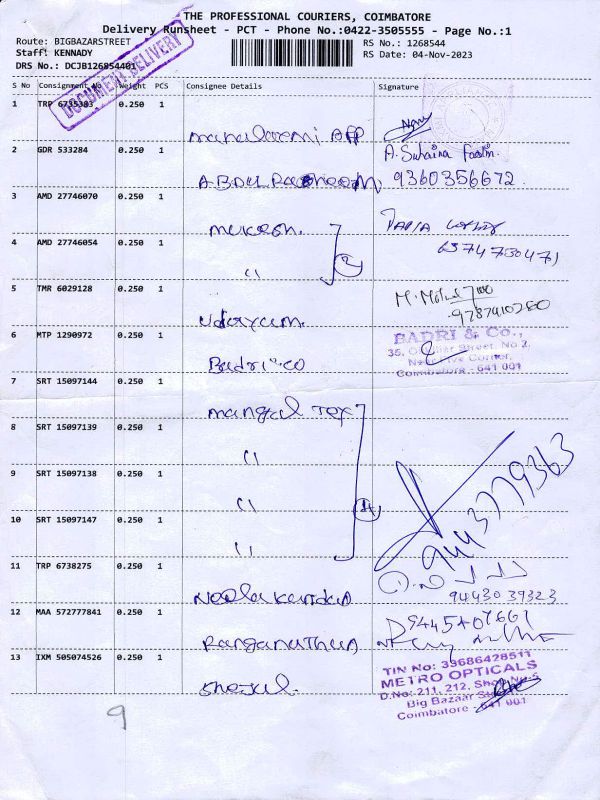 THE PROFESSIONAL COURIERS, COIMBATORE
Delivery Runsheet - PCT - Phone No.:0422-3505555 - Page No.:1
Route: BIGBAZARSTREET
RS No.: 1268544
Staff: KENNADY
RS Date: 04-Nov-2023
DRS No.: DCJB126854401
DOCUMENT DELIVERY
S No Consignment No Weight PCS Consignee Details Signature
1 TRP 6735383 0.250 1
2 GDR 533284 0.250 1 A. Suhaina
ABDUL 9360356672
3 AMD 27746070 0.250 1 mukesh
4 AMD 27746054 0.250 1 " 2
6374730471
5 TMR 6029128 0.250 1
Udayam.
6 MTP 1290972 0.250 1 BADRI & Co.,
Street, No 2,
Badri & co Corner,
Coimbatore - 641 001
7 SRT 15097144 0.250 1
Mangal Tex
8 SRT 15097139 0.250 1
"
9 SRT 15097138 0.250 1
" 4
10 SRT 15097147 0.250 1 9443779363
"
11 TRP 6738275 0.250 1
Neelakandan 94430 39323
12 MAA 572777841 0.250 1
Ranganathan
13 IXM 505074526 0.250 1 TIN No: 33686428511
METRO OPTICALS
Shejal. D.No: 211, 212, Shop No.5
Big Bazaar
Coimbatore - 641 001
9